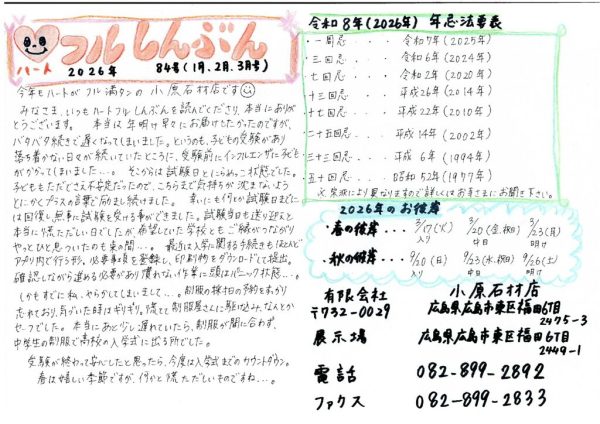 ハートフルしんぶん
2026年 84号(1月、2月、3月号)
今年もハートがフル満タンの小原石材店です
みなさま、いつもハートフルしんぶんを読んでくださり、本当にありが
とうございます。 本当は年明け早々にお届けしたかったのですが、
バタバタ続きで遅くなってしまいました。というのも、子どもの受験があり
落ち着かない日々が続いていたところに、受験前にインフルエンザに子どもが
かかってしまいました…。そこからは試験日とにらめっこ状態でした。
子どももただでさえ不安定だったので、こちらまで気持ちが沈まないよう
とにかくプラスの言葉で励まし続けました。幸いにも何とか試験日まで
には回復し無事に試験を受ける事ができました。試験当日も送り迎えと
本当に慌ただしい日でしたが、希望していた学校ともご縁がつながり
やっとひと息ついたのも束の間…。最近は入学に関する手続きもほとんど
アプリ内で行う形で、必要事項を登録し、印刷物をダウンロードして提出。
確認しながら進める必要があり慣れない作業に頭はパニック状態…。
しかもすでに私、やらかしてしまいまして…。制服の採寸の予約をすっかり
忘れており、気づいた時はギリギリ。慌てて制服屋さんに駆け込み、なんとか
セーフでした。本当にあと少し遅れていたら、制服が間に合わず、
中学生の制服で高校の入学式に出る所でした。
受験が終わって安心したと思ったら、今度は入学式までのカウントダウン。
春は嬉しい季節ですが、何かと慌ただしいものですね…。
令和8年(2026年) 年忌法要表
一周忌・・・・令和7年(2025年)
三回忌・・・・令和6年(2024年)
七回忌・・・・令和2年(2020年)
十三回忌・・・・平成26年(2014年)
十七回忌・・・・平成22年(2010年)
二十五回忌・・・・平成14年(2002年)
三十三回忌・・・・平成6年(1994年)
五十回忌・・・・昭和52年(1977年)
※宗派により異なりますので詳しくはお寺さまにお聞き下さい。
2026年のお彼岸
・春の彼岸・・・3/17(火) 3/20(金、祝) 3/23(月)
入り 中日 明け
・秋の彼岸・・・9/20(日) 9/23(水、祝) 9/26(土)
入り 中日 明け
有限会社 小原石材店
〒732-0029 広島県広島市東区福田6丁目
2475-3
展示場 広島県広島市東区福田6丁目
2449-1
電話 082-899-2892
ファクス 082-899-2833